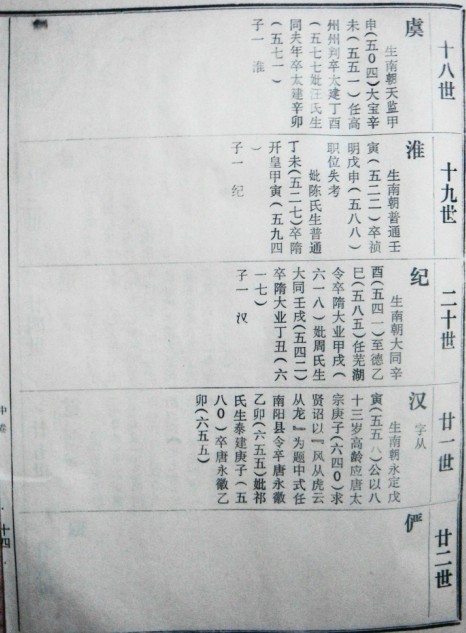 十八世
虞
生南朝天监甲
申(五0四)大宝辛
未(五五一)任高
州州判卒太建丁酉
(五七七妣汪氏生
同夫年卒太建辛卯
(五七一)
子一 淮
十九世
淮
生南朝普通壬
寅(五二二)卒祯
明戊申(五八八)
职位失考
妣陈氏生普通
丁未(五二七)卒隋
开皇甲寅(五九四
)
子一 纪
二十世
纪
生南朝大同辛
酉(五四一)至德乙
巳(五八五)任芜湖
令卒隋大业甲戌(
六一八)妣周氏生
大同壬戌(五四二)
卒隋大业丁丑(六
一七)
子一 汉
廿一世
汉 字从
生南朝永定戊
寅(五五八)公以八
十三岁高龄应唐太
宗庚子(六四0)求
贤诏以『风从虎云
从龙』为题中式任
南阳县令卒唐永徽
乙卯(六五五)妣祁
氏生泰建庚子(五
八0)卒唐永徽乙
卯(六五五)
廿二世
俨
中卷
十四